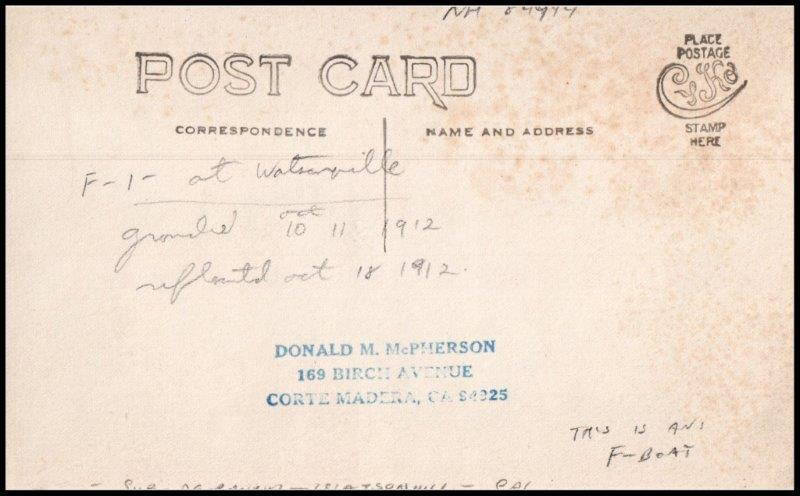 NH 
POST CARD
PLACE
POSTAGE
STAMP
HERE
CORRESPONDENCE
NAME AND ADDRESS
F-1- at Watsonville
oct
10 11 1912
oct 18 1912.
DONALD M. McPHERSON
169 BIRCH AVENUE
CORTE MADERA, CA 94925
THIS IS AN
F-BOAT